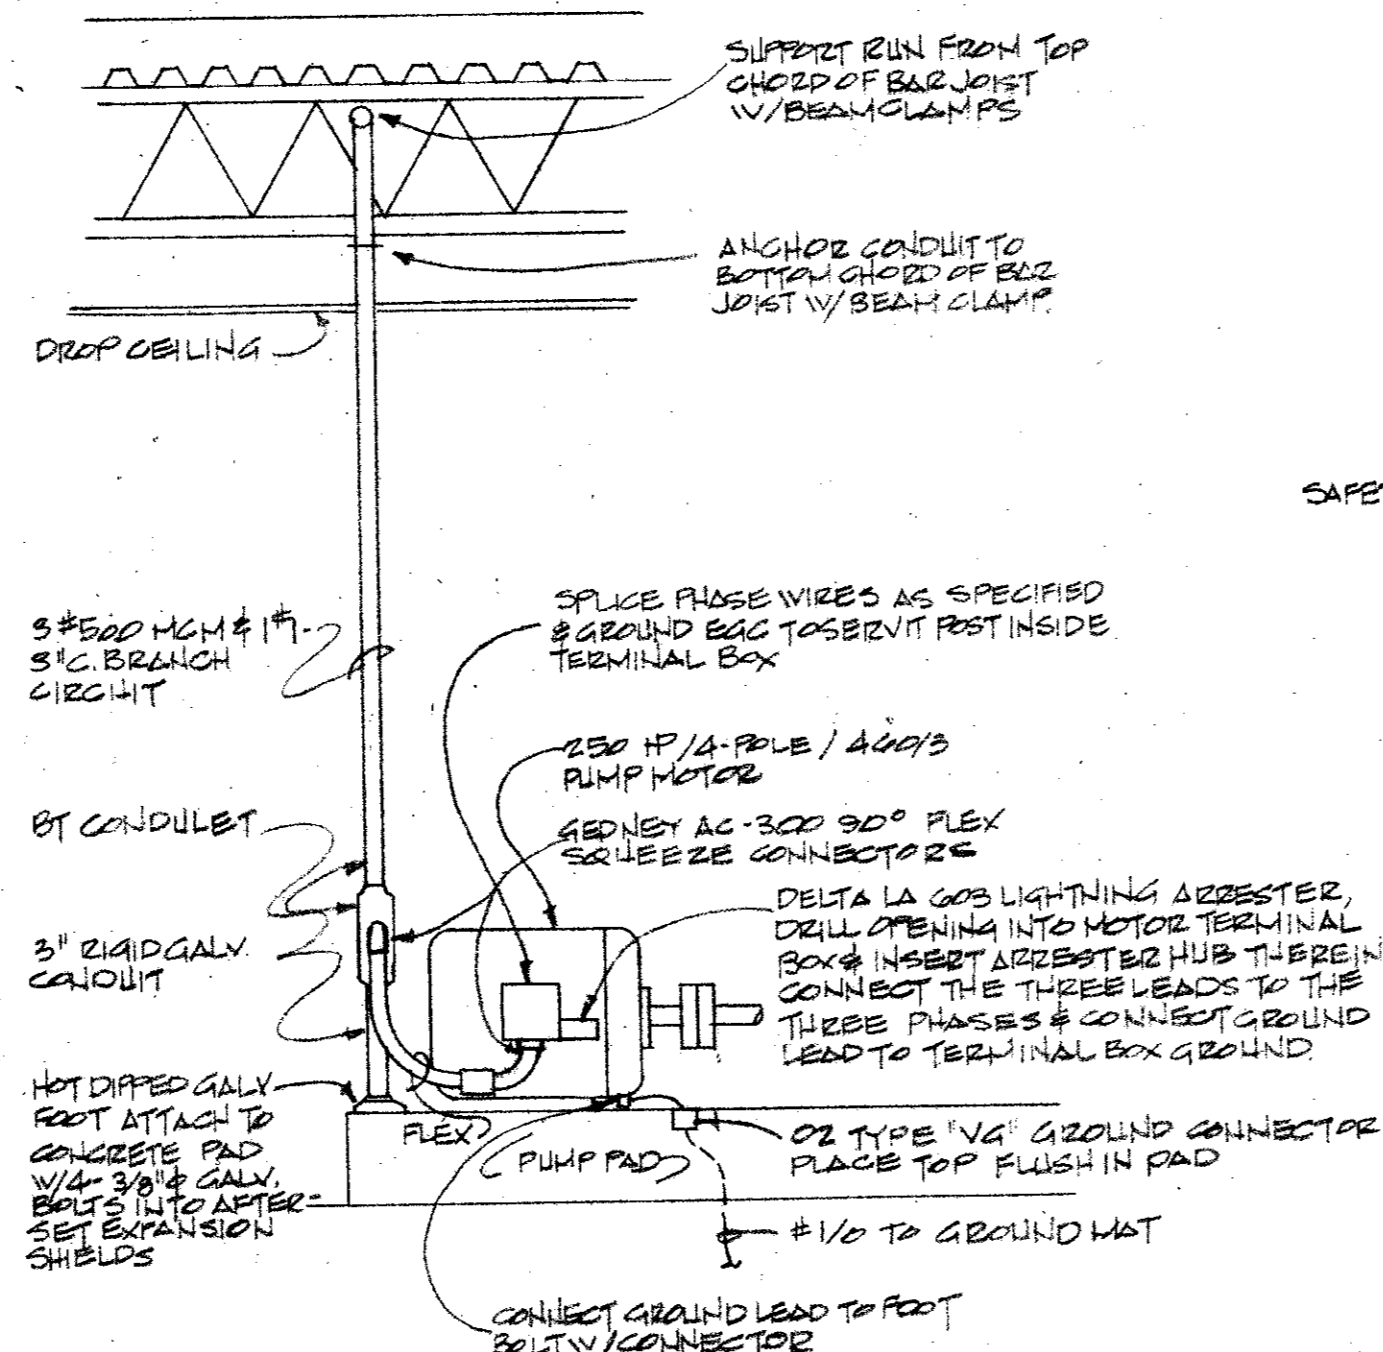 SUPPORT RUN FROM TOP
CHORD OF BAR JOIST
W/BEAM CLAMPS
ANCHOR CONDUIT TO
BOTTOM CHORD OF BAR
JOIST W/BEAM CLAMP.
DROP CEILING
SAFE
3#500 MCM & 1#1-
3"C. BRANCH
CIRCUIT
SPLICE PHASE WIRES AS SPECIFIED
& GROUND EGC TO SERVIT POST INSIDE
TERMINAL BOX
250 HP/4-POLE/460/3
PUMP MOTOR
BT CONDULET
GEDNEY AC-300 90° FLEX
SQUEEZE CONNECTORS
DELTA LA 603 LIGHTNING ARRESTER,
DRILL OPENING INTO MOTOR TERMINAL
BOX & INSERT ARRESTER HUB THEREIN
CONNECT THE THREE LEADS TO THE
THREE PHASES & CONNECT GROUND
LEAD TO TERMINAL BOX GROUND.
3" RIGID GALV.
CONDUIT
HOT DIPPED GALV
FOOT ATTACH TO
CONCRETE PAD
W/4-3/8"φ GALV.
BOLTS INTO AFTER-
SET EXPANSION
SHIELDS
FLEX
PUMP PAD
OZ TYPE "VG" GROUND CONNECTOR
PLACE TOP FLUSH IN PAD
#1/0 TO GROUND MAT
CONNECT GROUND LEAD TO FOOT
BOLT W/CONNECTOR